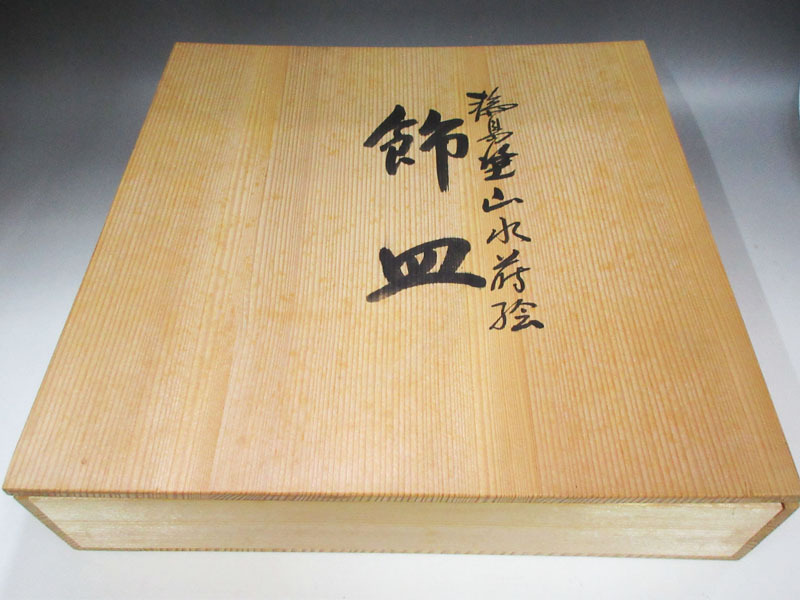 輪島塗山水蒔絵
飾皿